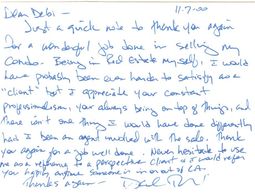 Dear Debi — 11.7.00
Just a quick note to thank you again
for a wonderful job done in selling my
Condo. Being in Real Estate myself, I would
have probably been even harder to satisfy as a
"client" but I appreciate your constant
professionalism, your always being on top of things, and
there isn't one thing I would have done differently
had I been an agent involved with the sale. Thank
you again for a job well done. Never hesitate to use
me as a reference to a perspective client & I would refer
you highly to anyone in or out of LA.
Thanks again